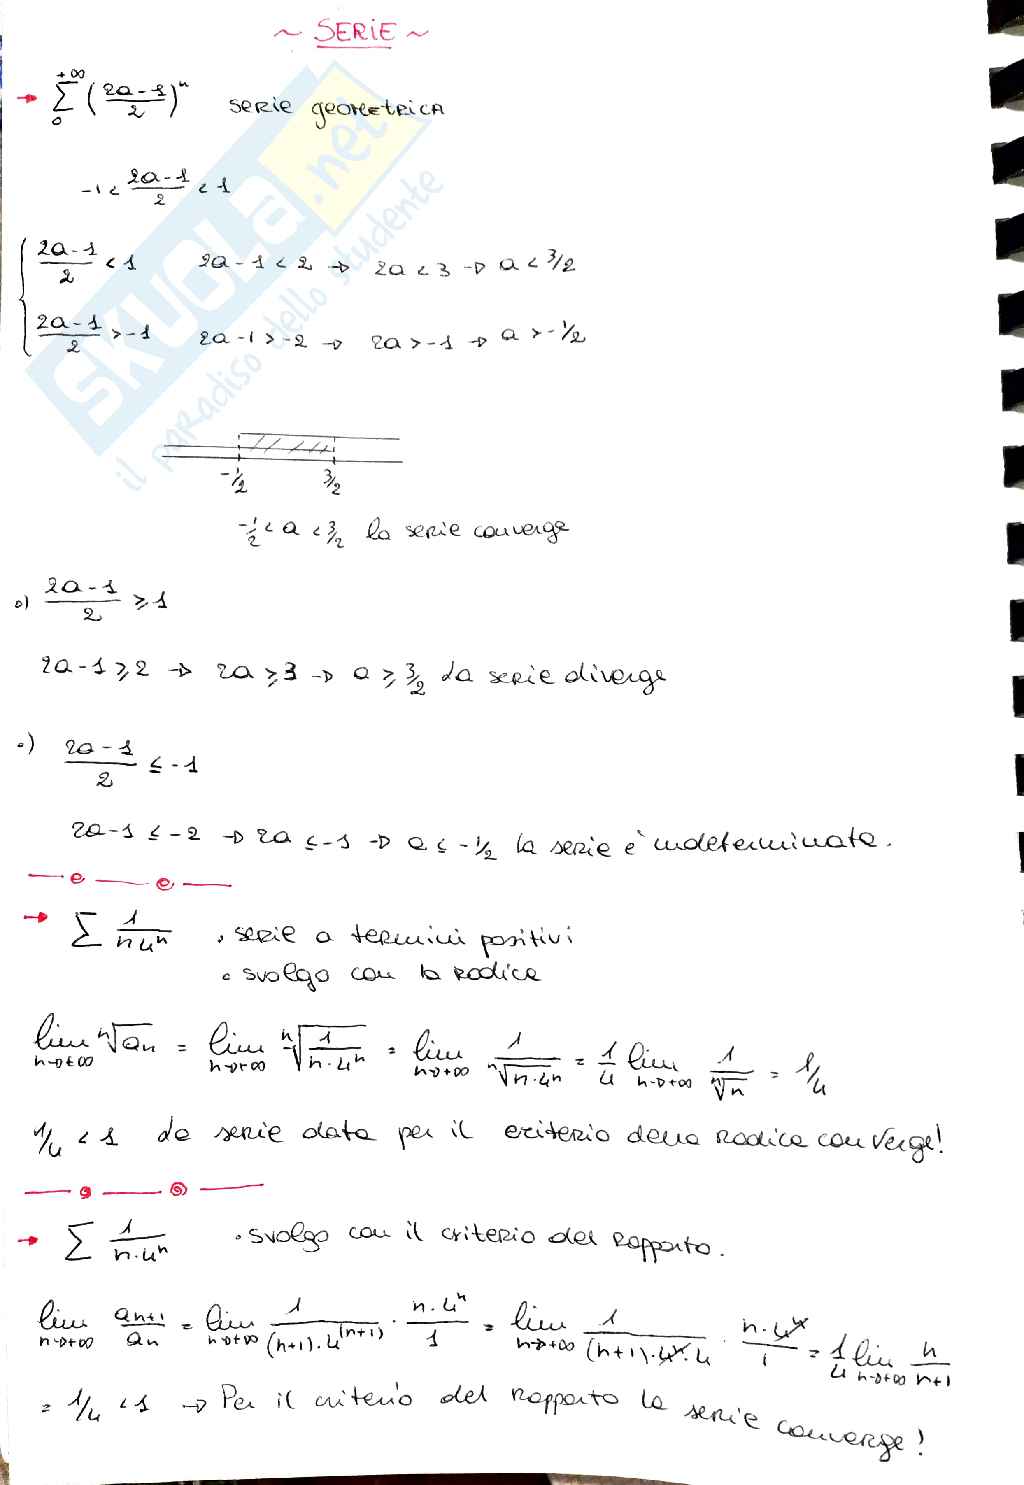 ~ SERIE ~
→ +∞ Σ 0 ((2a-1)/2)^n serie geometrica
-1 < (2a-1)/2 < 1
(2a-1)/2 < 1 2a-1 < 2 → 2a < 3 → a < 3/2
(2a-1)/2 > -1 2a-1 > -2 → 2a > -1 → a > -1/2
-1/2 3/2
-1/2 < a < 3/2 la serie converge
•) (2a-1)/2 ≥ 1
2a-1 ≥ 2 → 2a ≥ 3 → a ≥ 3/2 la serie diverge
•) (2a-1)/2 ≤ -1
2a-1 ≤ -2 → 2a ≤ -1 → a ≤ -1/2 la serie è indeterminata.
→ Σ 1/(n 4^n) • serie a termini positivi
• svolgo con la radice
lim n→+∞ ⁿ√an = lim n→+∞ ⁿ√(1/(n·4^n)) = lim n→+∞ 1/ⁿ√(n·4^n) = 1/4 lim n→+∞ 1/ⁿ√n = 1/4
1/4 < 1 la serie data per il criterio della radice converge!
→ Σ 1/(n·4^n) • svolgo con il criterio del rapporto.
lim n→+∞ an+1/an = lim n→+∞ 1/((n+1)·4^(n+1)) · (n·4^n)/1 = lim n→+∞ 1/((n+1)·4^n·4) · (n·4^n)/1 = 1/4 lim n→+∞ n/(n+1)
= 1/4 < 1 → Per il criterio del rapporto la serie converge!
SKUOLA.net
il paradiso dello studente